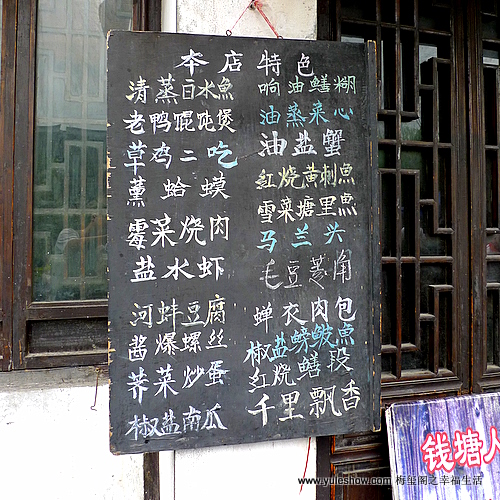 本店特色
清蒸白水魚
老鸭馄饨煲
草鸡二吃
薰蛤蟆
霉菜烧肉
盐水虾
河蚌豆腐
酱爆螺丝
荠菜炒蛋
椒盐南瓜
响油鳝糊
油蒸菜心
油盐蟹
红烧黄刺魚
雪菜塘里魚
马兰头
毛豆煎角
蝉衣肉包
椒盐鳑鲏魚
红烧鳝段
千里飘香
钱塘人
www.yuleshow.com 梅玺阁之幸福生活